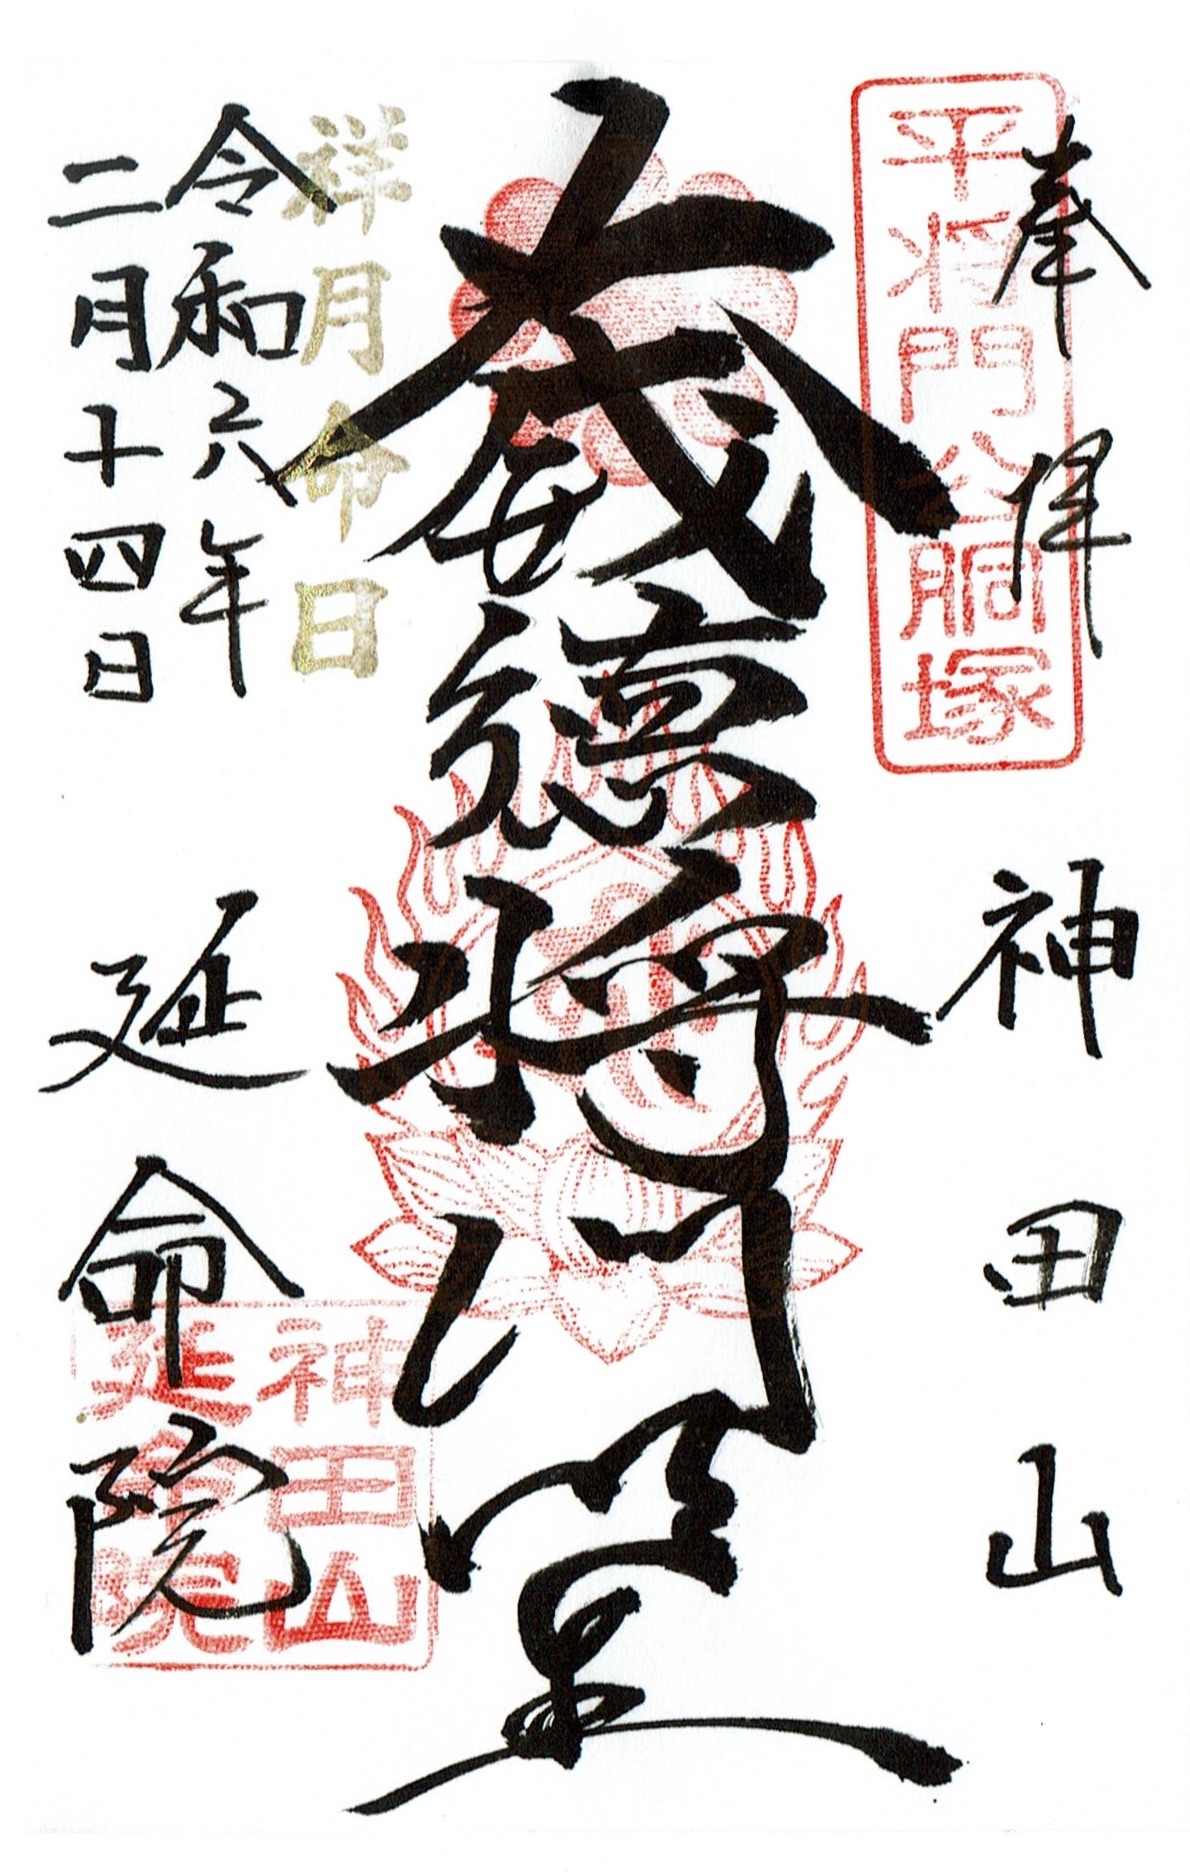 奉拝
平将門公胴塚
神田山
大威徳将門堂
祥月命日
令和六年
二月十四日
延命院
神田山
延命院